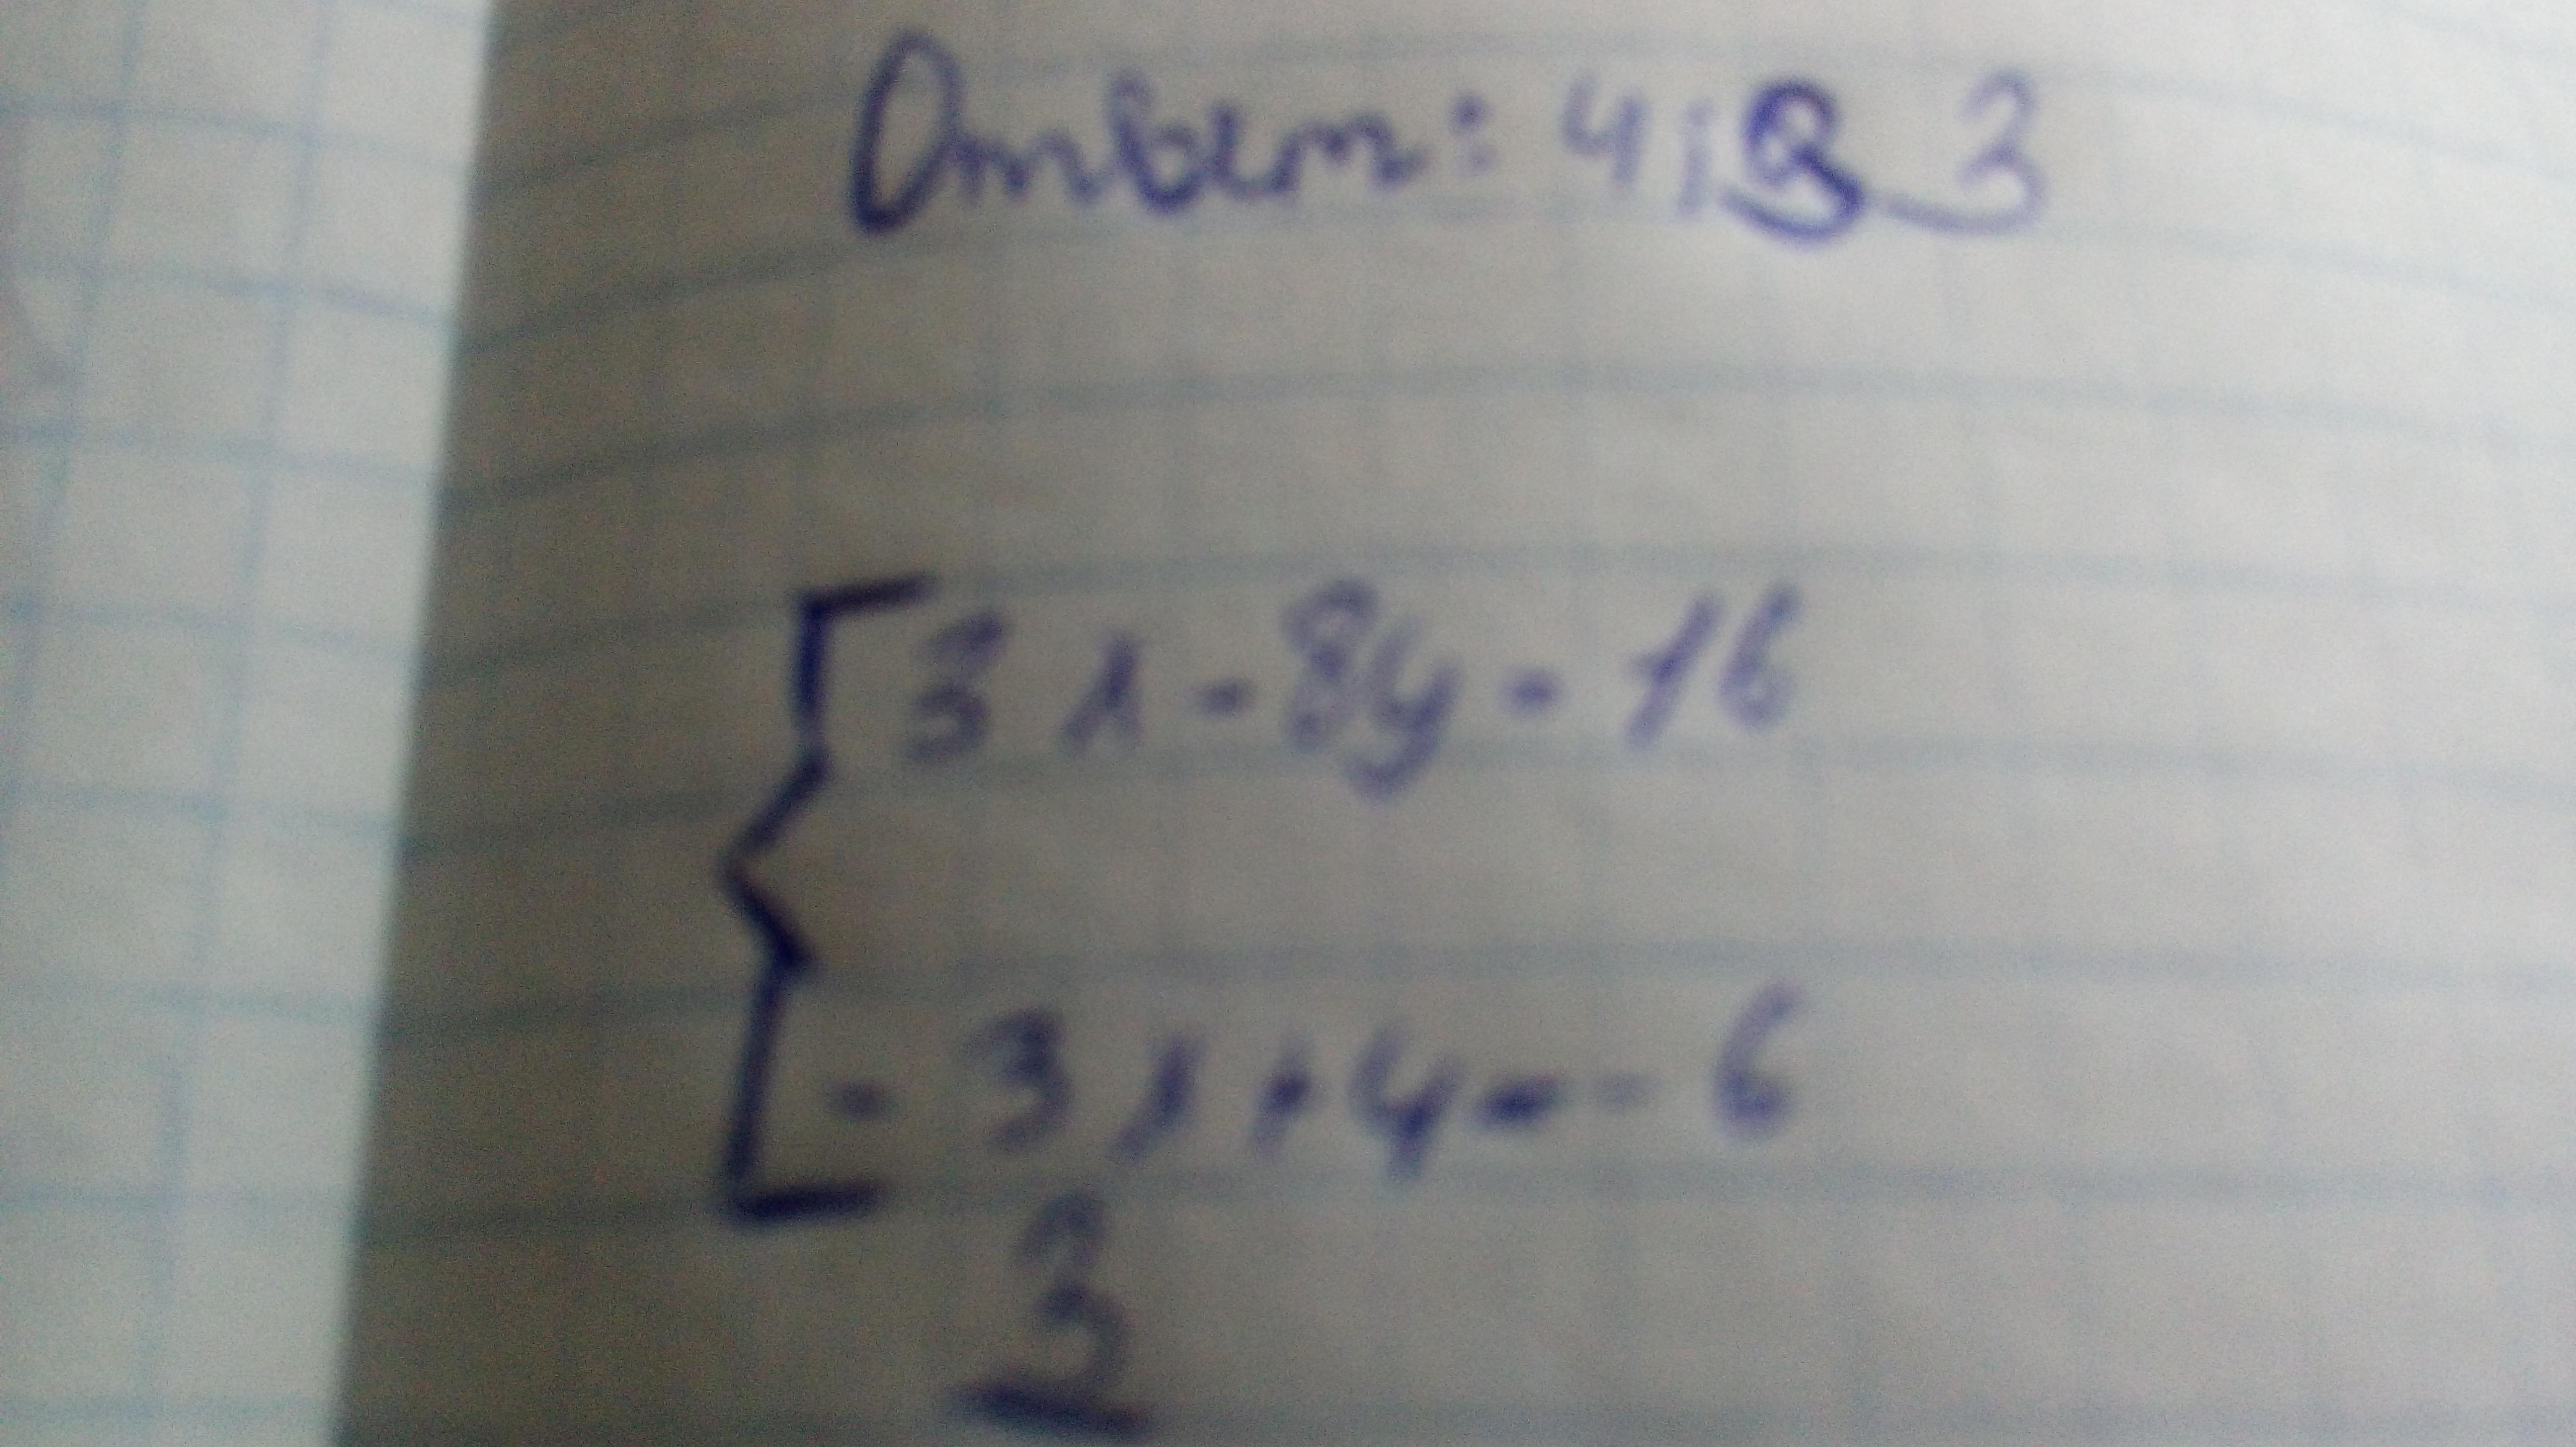 Ответ: 4; 3
3x - 8y = 16
- 3x + y = - 6
3